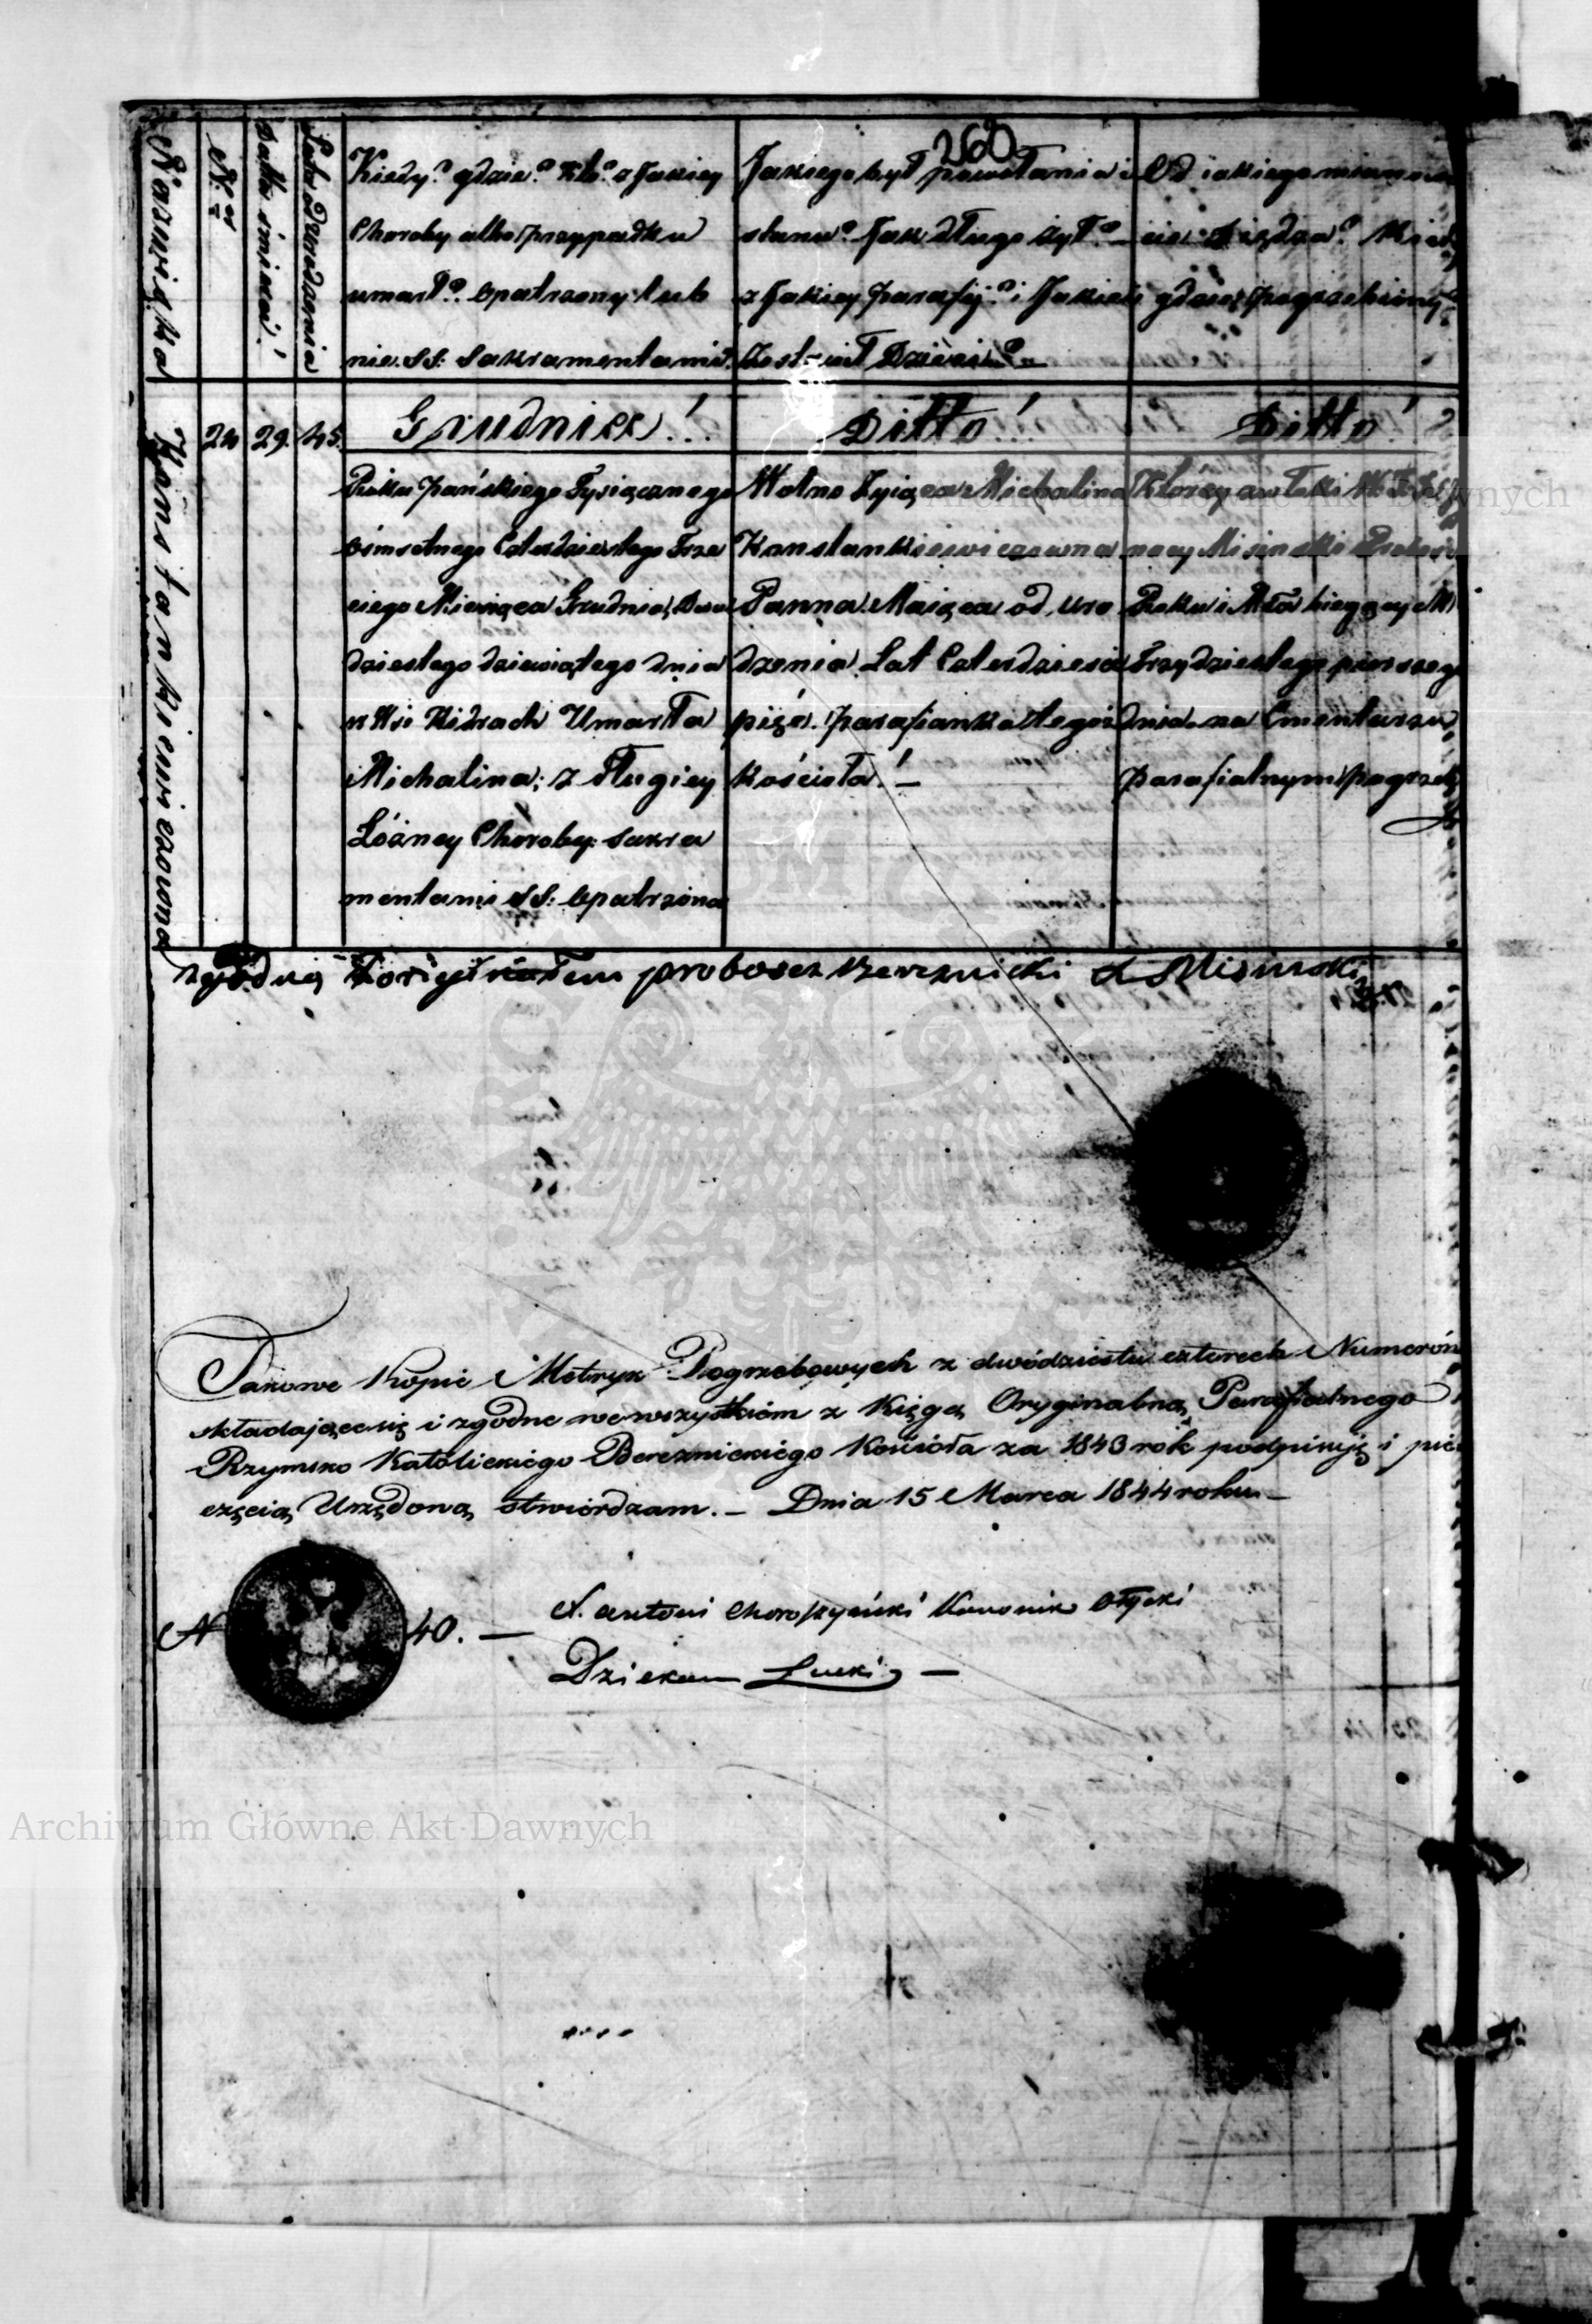 260
Nazwiska
N.r
Datta śmierci!
Lata Urodzenia
Kiedy? gdzie? kto? z Jakiey
Choroby albo przypadku
umarł? opatrzony lub
nie SS: Sakramentami?
Jakiego był powołania i
stanu? Jak długo żył? –
z Jakiey Parafij? i Jakich
Zostawił Dzieci? –
Od iakiego mianowi
cie Xiędza? Kiedy
gdzie? pogrzebiony?
Konstankiewiczowna
24
29.
45.
Grudniec!
Ditto!
Ditto!
Roku Pańskiego Tysiącznego
ósmsetnego Czterdziestego Trze
ciego Miesiąca Grudnia, Dwu
dziestego dziewiątego dnia
w Wsi Kidrach Umarła
Michalina; z długiey
Łóżney Choroby. Sakra
mentami SS: Opatrzona
Wolno Zyiąca Michalina
Konstankiewiczowna
Panna. Maiąca od uro
dzenia Lat Czterdzieście
pięć. parafianka tegoż
Kościoła! –
Którey zwłoki
Misinski
Roku i Mca bieżący
Trzydziestego pierwszego
dnia na Cmentarzu
parafialnym pogrzeb
zgodno z oryginałem proboszcz Bereznicki X Misinski
Takowe Kopie Metryk Pogrzebowych z dwódziestu czterech Numerów
składające się i zgodne we wszystkiém z Księgą Oryginalną Parafialnego
Rzymsko Katolickiego Berezniekiego Kościoła za 1843 rok podpisuję i pie
częcią Urzędową stwierdzam. – Dnia 15 Marca 1844 roku –
N 40. –
X. Antoni Choroszyński Kanonik Ołycki
Dziekan Łucki –
Archiwum Główne Akt Dawnych
Archiwum Główne Akt Dawnych